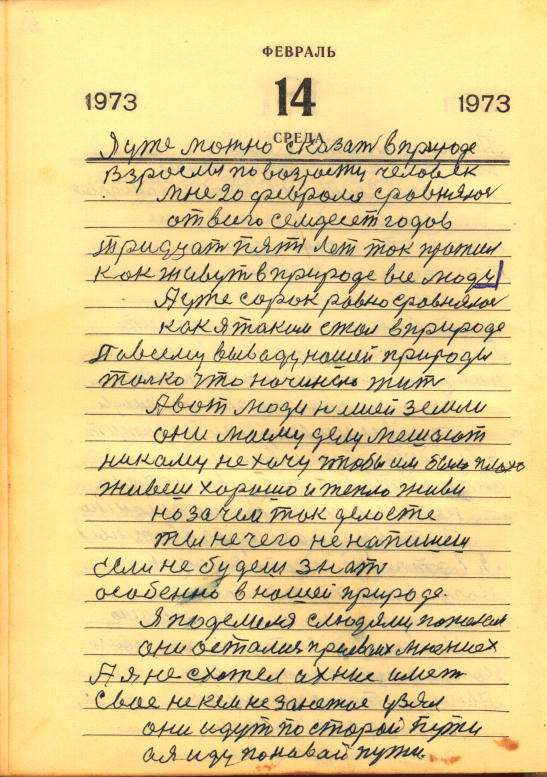 ФЕВРАЛЬ
1973 14 1973
СРЕДА
Я уже можно сказат в природе
взрослы по возрасту человек
мне 20 февроля сровнялос
от всего семдесет годов
тридцат пят лет ток прожил
как живут в природе все люди
А уже сорок ровно сровнялос
как я таким стал в природе
По всему вываду нашей природы
толко что начинаю жит
А вот люди нашей земли
они маему делу мешают
никаму не хачу чтобы им было плохо
живеш харошо и тепло живи
но зачем так делаете
ты нечего не напишеш
если не будеш знат
особенно в нашей природе.
Я поделился с людями
они осталися при своих мнениях
А я не схотел ихние имет
Свое не кем не занятое узял
они идут по старой пути
а я иду по навай пути.